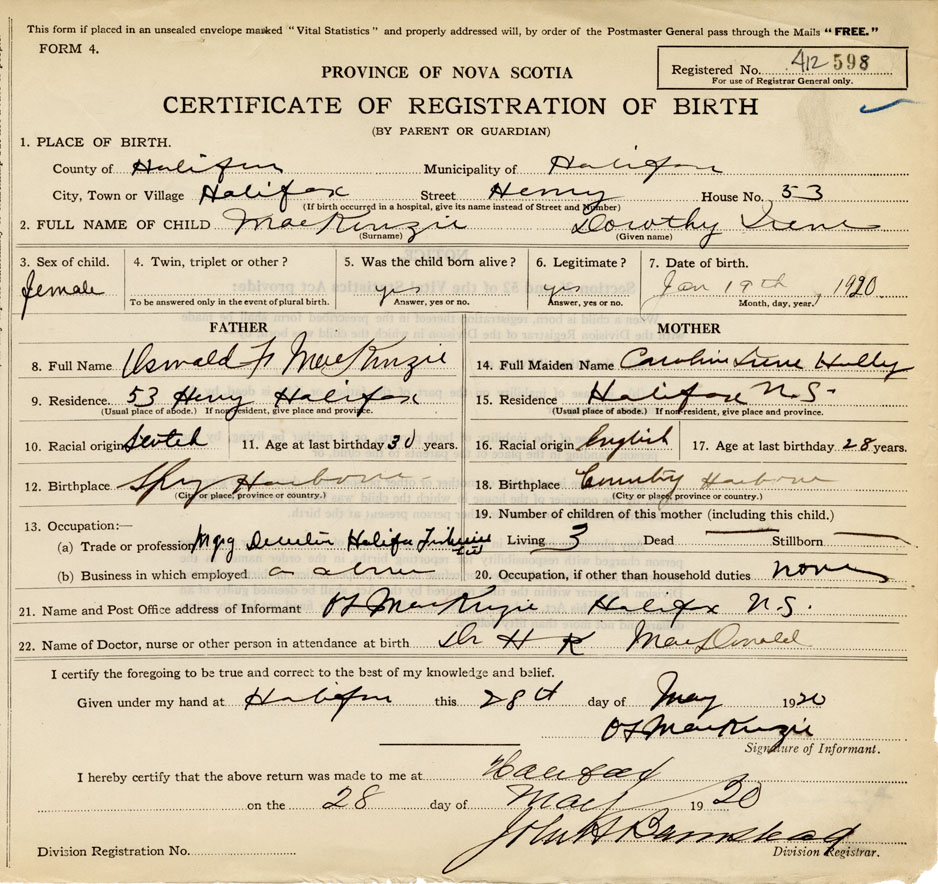 This form if placed in an unsealed envelope marked "Vital Statistics" and properly addressed will, by order of the Postmaster General pass through the Mails "FREE."
FORM 4.
Registered No. 412 598
For use of Registrar General only.
PROVINCE OF NOVA SCOTIA
CERTIFICATE OF REGISTRATION OF BIRTH
(BY PARENT OR GUARDIAN)
1. PLACE OF BIRTH.
County of Halifax Municipality of Halifax
City, Town or Village Halifax Street Henry House No. 53
(If birth occurred in a hospital, give its name instead of Street and Number)
2. FULL NAME OF CHILD MacKenzie Dorothy Irene
(Surname) (Given name)
3. Sex of child. 4. Twin, triplet or other? 5. Was the child born alive? 6. Legitimate? 7. Date of birth.
female yes yes Jan 19th, 1920
To be answered only in the event of plural birth. Answer, yes or no. Answer, yes or no. Month, day, year,
FATHER MOTHER
8. Full Name Oswald F MacKenzie 14. Full Maiden Name Caroline Irene Hully
9. Residence. 53 Henry Halifax 15. Residence Halifax N.S.
(Usual place of abode.) If non-resident, give place and province. (Usual place of abode.) If non-resident, give place and province.
10. Racial origin Scotch 11. Age at last birthday 30 years. 16. Racial origin English 17. Age at last birthday 28 years.
12. Birthplace Spry Harbour 18. Birthplace Country Harbour
(City or place, province or country.) (City or place, province or country.)
13. Occupation:— 19. Number of children of this mother (including this child.)
(a) Trade or profession Mgng Halifax Living 3 Dead — Stillborn —
(b) Business in which employed as above 20. Occupation, if other than household duties none
21. Name and Post Office address of Informant OF MacKenzie Halifax N.S.
22. Name of Doctor, nurse or other person in attendance at birth Dr H K MacDonald
I certify the foregoing to be true and correct to the best of my knowledge and belief.
Given under my hand at Halifax this 28th day of May 1920
OF MacKenzie
Signature of Informant.
I hereby certify that the above return was made to me at Halifax
on the 28 day of May 1920
John H Barnstead
Division Registrar.
Division Registration No.